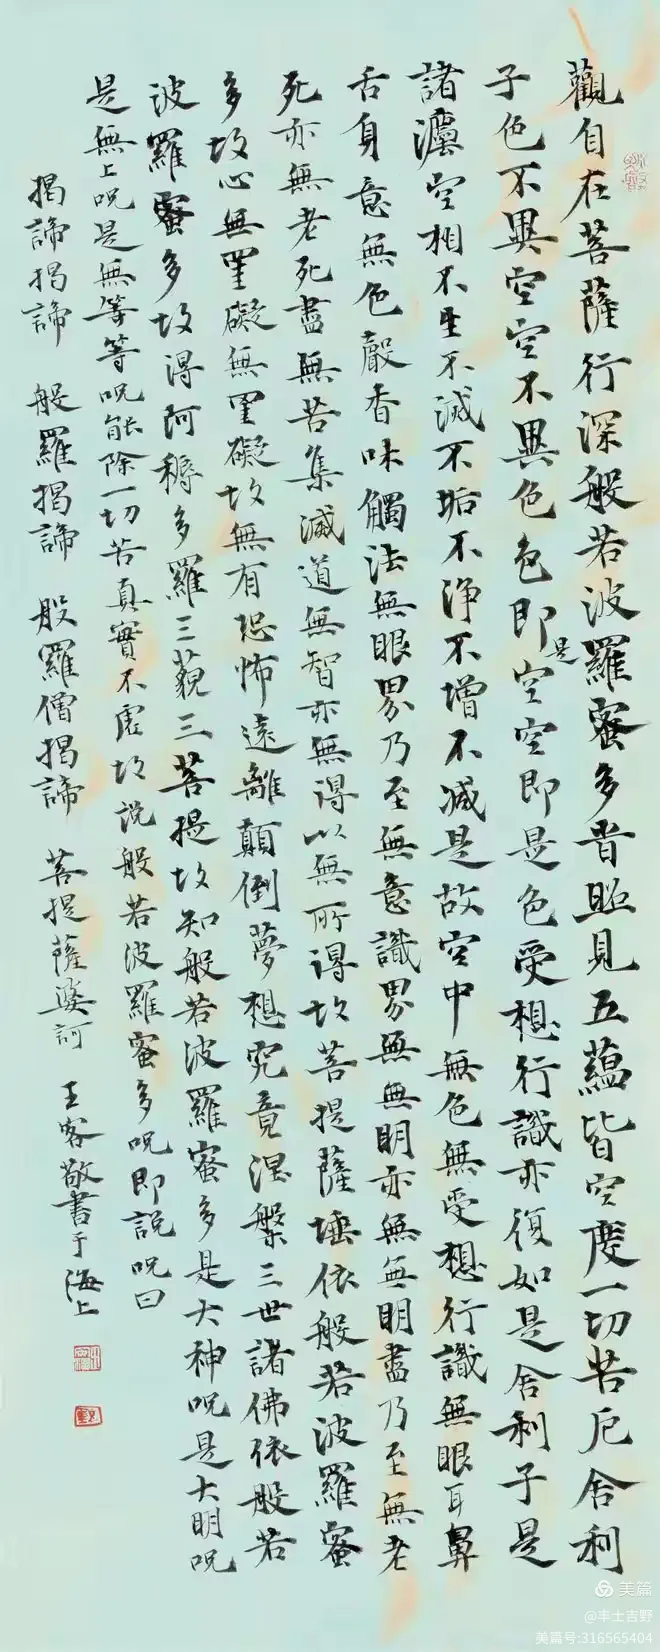 觀自在菩薩行深般若波羅蜜多旹照見五蘊皆空度一切苦厄舍利
子色不異空空不異色色即是空空即是色受想行識亦復如是舍利子是
諸灋空相不生不滅不垢不淨不增不減是故空中無色無受想行識無眼耳鼻
舌身意無色聲香味觸法無眼界乃至無意識界無無明亦無無明盡乃至無老
死亦無老死盡無苦集滅道無智亦無得以無所得故菩提薩埵依般若波羅蜜
多故心無罣礙無罣礙故無有恐怖遠離顛倒夢想究竟涅槃三世諸佛依般若
波羅蜜多故得阿耨多羅三藐三菩提故知般若波羅蜜多是大神呪是大明呪
是無上呪是無等等呪能除一切苦真實不虛故說般若波羅蜜多呪即說呪曰
揭諦揭諦 般羅揭諦 般羅僧揭諦 菩提薩婆訶 王客敬書于海上
美篇
@丰土吉野
美篇号:316565404